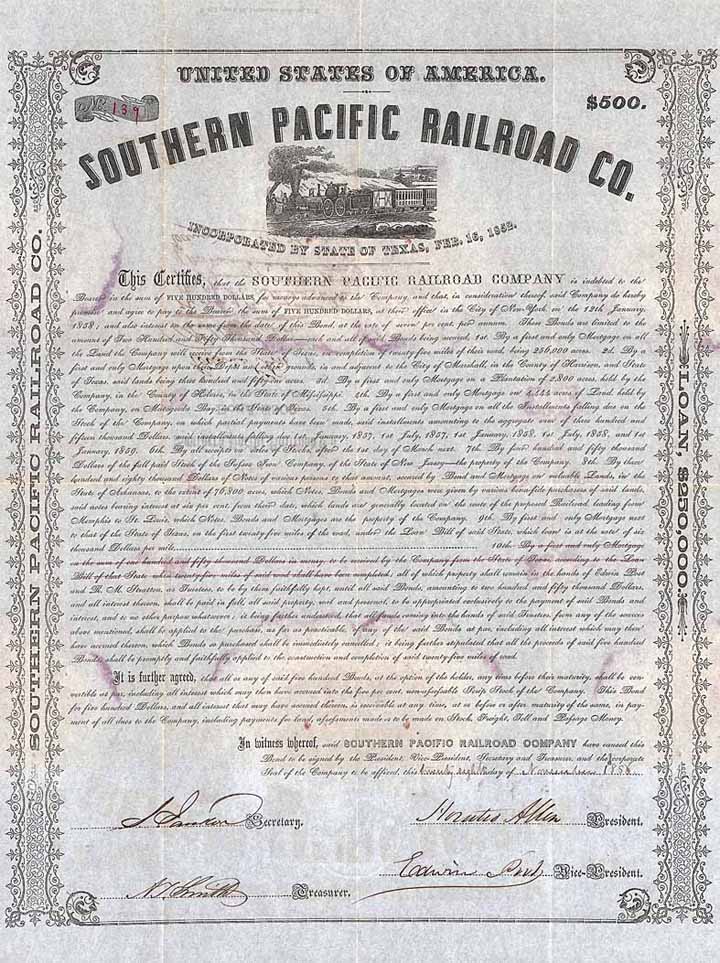 UNITED STATES OF AMERICA.
No. 139
$500.
SOUTHERN PACIFIC RAILROAD CO.
INCORPORATED BY STATE OF TEXAS, FEB. 16, 1852.
SOUTHERN PACIFIC RAILROAD CO.
LOAN, $250,000.
This Certifies, that the SOUTHERN PACIFIC RAILROAD COMPANY is indebted to the
Bearer in the sum of FIVE HUNDRED DOLLARS, for moneys advanced to the Company, and that, in consideration thereof, said Company do hereby
promise and agree to pay to the Bearer the sum of FIVE HUNDRED DOLLARS, at their office in the City of New-York on the 12th January,
1858; and also interest on the same from the date of this Bond, at the rate of seven per cent. per annum. These Bonds are limited to the
amount of Two Hundred and Fifty Thousand Dollars—the and all of said Bonds being secured, 1st. By a first and only Mortgage on all
the Land the Company will receive from the State of Texas, on completion of twenty five miles of their road, being 256,000 acres. 2d. By a
first and only Mortgage upon their Depot and grounds, in and adjacent to the City of Marshall, in the County of Harrison, and State
of Texas, said lands being three hundred and fifty-six acres. 3d. By a first and only Mortgage on a Plantation of 2,800 acres, held by the
Company, in the County of Holmes, in the State of Mississippi. 4th. By a first and only Mortgage on acres of Land, held by
the Company, on Matagorda Bay, in the State of Texas. 5th. By a first and only Mortgage on all the Installments falling due on the
Stock of the Company, on which partial payments have been made, said installments amounting to the aggregate over of three hundred and
fifteen thousand Dollars, and installments falling due 1st. January, 1857, 1st July, 1857, 1st January, 1858, 1st July, 1858, and 1st
January, 1859. 6th. By all receipts on sales of Stocks, after the 1st day of March next. 7th. By four hundred and fifty thousand
Dollars of the full paid Stock of the Company of the State of New Jersey—the property of the Company. 8th. By three
hundred and eighty thousand Dollars of Notes of various persons to that amount, secured by Bond and Mortgage on valuable Lands, in the
State of Arkansas, to the extent of 76,800 acres, which Notes, Bonds and Mortgages were given by various bonafide purchasers of said lands,
said notes bearing interest at six per cent. from their date, which lands are generally located on the route of the proposed Railroad leading from
Memphis to St. Louis, which Notes, Bonds and Mortgages are the property of the Company. 9th. By a first and only Mortgage next
to that of the State of Texas, on the first twenty-five miles of the road, under the Loan Bill of said State, which loan is at the rate of six
thousand Dollars per mile. 10th. By a first and only Mortgage
on the sum of one hundred and fifty thousand Dollars in money, to be received by the Company from the State of Texas, according to the Loan
Bill of that State when twenty-five miles of said road shall have been completed; all of which property shall remain in the hands of Edwin Post
and R. M. Stratton, as Trustees, to be by them faithfully kept, until all said Bonds, amounting to two hundred and fifty thousand Dollars,
and all interest thereon, shall be paid in full, all said property, net and personal, to be appropriated exclusively to the payment of said Bonds and
interest, and to no other purpose whatsoever; it being further understood, that all funds coming into the hands of said Trustees, from any of the means
above mentioned, shall be applied to the purchase, as far as practicable, of any of the said Bonds at par, including all interest which may then
have accrued thereon, which Bonds so purchased shall be immediately cancelled; it being further stipulated that all the proceeds of said five hundred
Bonds shall be promptly and faithfully applied to the construction and completion of said twenty-five miles of road.
It is further agreed, that all or any of said five hundred Bonds, at the option of the holder, any time before their maturity, shall be con-
vertible at par, including all interest which may then have accrued into the five per cent. non-assessable Scrip Stock of the Company. This Bond
for five hundred Dollars, and all interest that may have accrued thereon, is receivable at any time, at or before or after maturity of the same, in pay-
ment of all dues to the Company, including payments for land, assessments made or to be made on Stock, Freight, Toll and Passage Money.
In witness whereof, said SOUTHERN PACIFIC RAILROAD COMPANY have caused this
Bond to be signed by the President, Vice-President, Secretary and Treasurer, and the corporate
Seal of the Company to be affixed, this twenty eighth day of November 1856
Secretary.
Horatio Allen President.
Edwin Post Vice-President.
Treasurer.